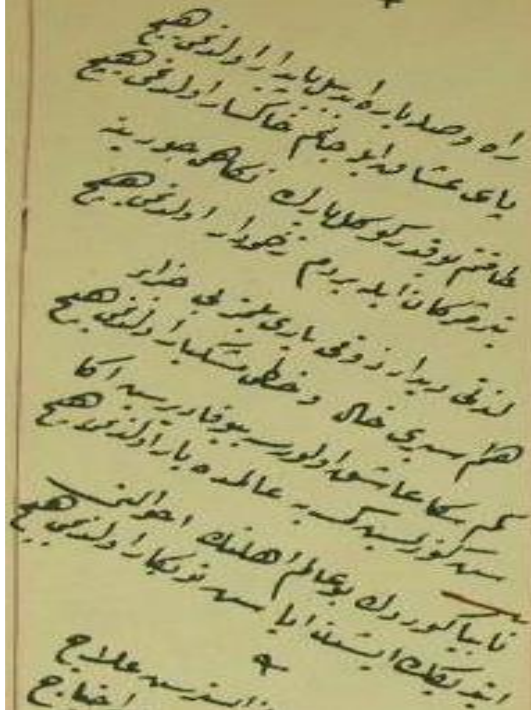 راه وصل یاره ایدل پایدار اولدڭمی هیچ
پای عشاق ایله جانم خاکسار اولدڭمی هیچ
طاقتم یوقدر کوکل یارڭ نکاهی جورینه
تیر مژکان ایله بردم زخمدار اولدڭمی هیچ
لذتی دیدار ذوقی یاری بیلمز بی خبر
هم سری خال و خطی مشکبار اولدڭمی هیچ
کم سکا عاشق اولور سه بیوفا دیرسه اکا
سن کوزلسڭ که به عالمده یار اولدڭمی هیچ
نابیا کوردڭ بو عالم اهلنڭ احوالنی
ایتدیکڭ ایشدن ایا سن توبکار اولدڭمی هیچ
ایسترسن علاج
احتیاج